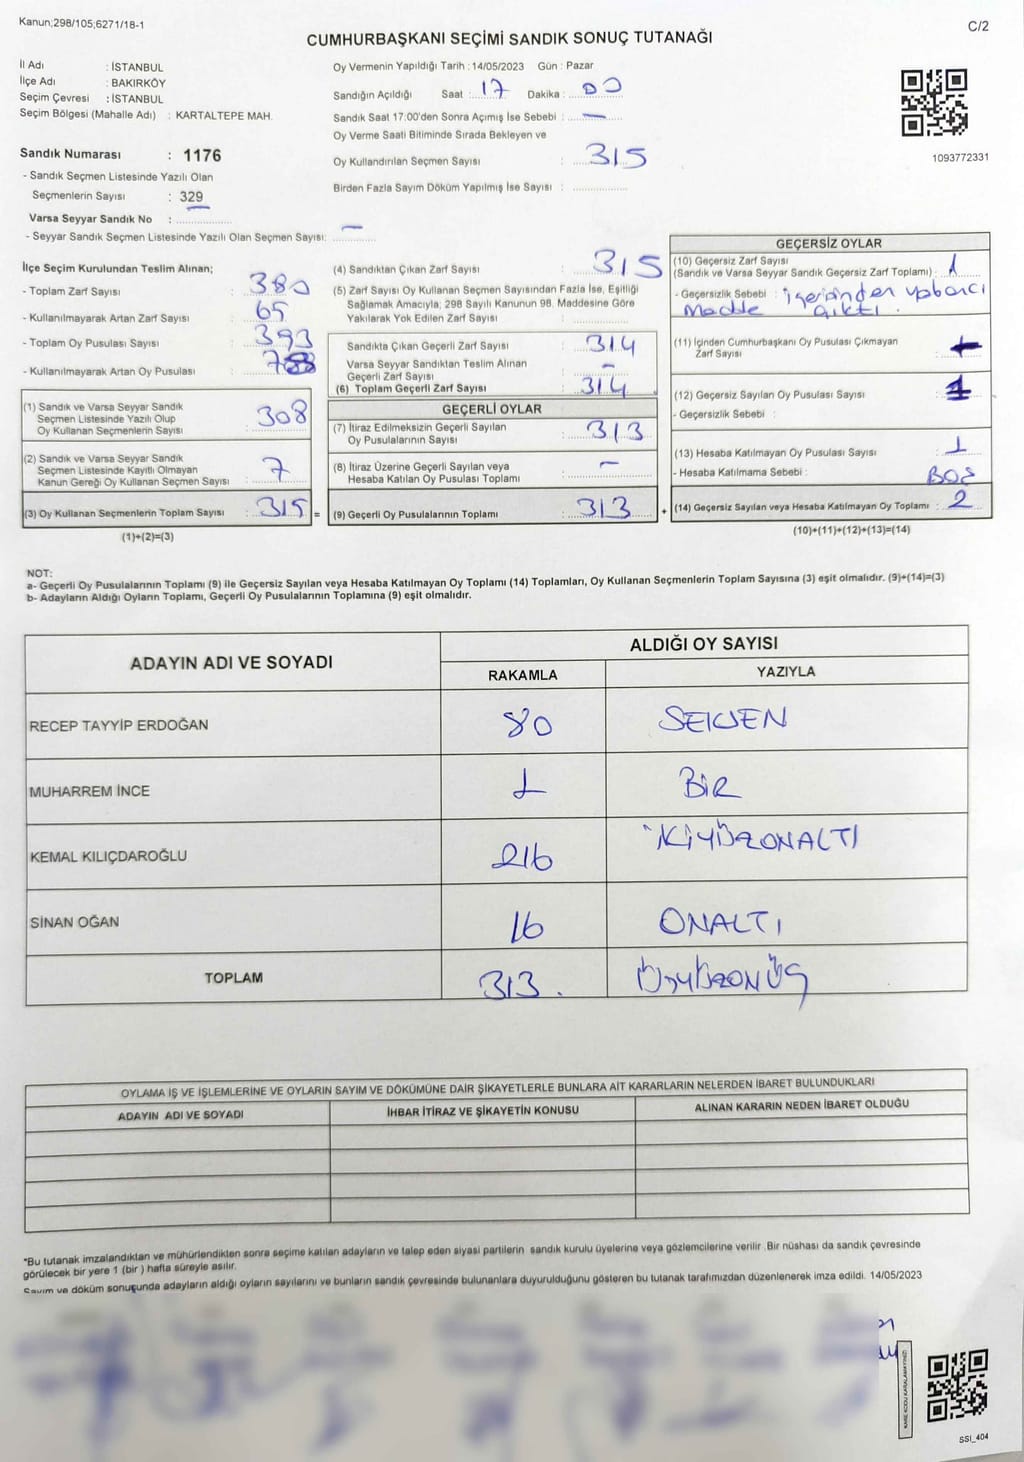 Kanun;298/105;6271/18-1
C/2
CUMHURBAŞKANI SEÇİMİ SANDIK SONUÇ TUTANAĞI
İl Adı : İSTANBUL
İlçe Adı : BAKIRKÖY
Seçim Çevresi : İSTANBUL
Seçim Bölgesi (Mahalle Adı) : KARTALTEPE MAH.
Sandık Numarası : 1176
- Sandık Seçmen Listesinde Yazılı Olan
Seçmenlerin Sayısı : 329
Varsa Seyyar Sandık No :
- Seyyar Sandık Seçmen Listesinde Yazılı Olan Seçmen Sayısı: —
Oy Vermenin Yapıldığı Tarih :14/05/2023 Gün : Pazar
Sandığın Açıldığı Saat : 17 Dakika : 00
Sandık Saat 17:00'den Sonra Açımış İse Sebebi : —
Oy Verme Saati Bitiminde Sırada Bekleyen ve
Oy Kullandırılan Seçmen Sayısı : 315
Birden Fazla Sayım Döküm Yapılmış İse Sayısı :
1093772331
İlçe Seçim Kurulundan Teslim Alınan;
- Toplam Zarf Sayısı : 380
- Kullanılmayarak Artan Zarf Sayısı : 65
- Toplam Oy Pusulası Sayısı : 393
- Kullanılmayarak Artan Oy Pusulası :
(1) Sandık ve Varsa Seyyar Sandık
Seçmen Listesinde Yazılı Olup
Oy Kullanan Seçmenlerin Sayısı : 308
(2) Sandık ve Varsa Seyyar Sandık
Seçmen Listesinde Kayıtlı Olmayan
Kanun Gereği Oy Kullanan Seçmen Sayısı : 7
(3) Oy Kullanan Seçmenlerin Toplam Sayısı : 315 =
(1)+(2)=(3)
(4) Sandıktan Çıkan Zarf Sayısı : 315
(5) Zarf Sayısı Oy Kullanan Seçmen Sayısından Fazla İse, Eşitliği
Sağlamak Amacıyla; 298 Sayılı Kanunun 98. Maddesine Göre
Yakılarak Yok Edilen Zarf Sayısı :
Sandıkta Çıkan Geçerli Zarf Sayısı : 314
Varsa Seyyar Sandıktan Teslim Alınan
Geçerli Zarf Sayısı : -
(6) Toplam Geçerli Zarf Sayısı : 314
GEÇERLİ OYLAR
(7) İtiraz Edilmeksizin Geçerli Sayılan
Oy Pusulalarının Sayısı : 313
(8) İtiraz Üzerine Geçerli Sayılan veya
Hesaba Katılan Oy Pusulası Toplamı : —
(9) Geçerli Oy Pusulalarının Toplamı : 313 +
GEÇERSİZ OYLAR
(10) Geçersiz Zarf Sayısı
(Sandık ve Varsa Seyyar Sandık Geçersiz Zarf Toplamı) : 1
- Geçersizlik Sebebi : içerisinden yabancı
Madde çıktı.
(11) İçinden Cumhurbaşkanı Oy Pusulası Çıkmayan
Zarf Sayısı :
(12) Geçersiz Sayılan Oy Pusulası Sayısı :
- Geçersizlik Sebebi :
(13) Hesaba Katılmayan Oy Pusulası Sayısı : 1
- Hesaba Katılmama Sebebi : BOŞ
(14) Geçersiz Sayılan veya Hesaba Katılmayan Oy Toplamı : 2
(10)+(11)+(12)+(13)=(14)
NOT:
a- Geçerli Oy Pusulalarının Toplamı (9) ile Geçersiz Sayılan veya Hesaba Katılmayan Oy Toplamı (14) Toplamları, Oy Kullanan Seçmenlerin Toplam Sayısına (3) eşit olmalıdır. (9)+(14)=(3)
b- Adayların Aldığı Oyların Toplamı, Geçerli Oy Pusulalarının Toplamına (9) eşit olmalıdır.
ADAYIN ADI VE SOYADI
ALDIĞI OY SAYISI
RAKAMLA YAZIYLA
RECEP TAYYİP ERDOĞAN 80 SEKSEN
MUHARREM İNCE 1 BİR
KEMAL KILIÇDAROĞLU 216 İKİYÜZONALTI
SİNAN OĞAN 16 ONALTI
TOPLAM 313. ÜÇYÜZONÜÇ
OYLAMA İŞ VE İŞLEMLERİNE VE OYLARIN SAYIM VE DÖKÜMÜNE DAİR ŞİKAYETLERLE BUNLARA AİT KARARLARIN NELERDEN İBARET BULUNDUKLARI
ADAYIN ADI VE SOYADI İHBAR İTİRAZ VE ŞİKAYETİN KONUSU ALINAN KARARIN NEDEN İBARET OLDUĞU
*Bu tutanak imzalandıktan ve mühürlendikten sonra seçime katılan adayların ve talep eden siyasi partilerin sandık kurulu üyelerine veya gözlemcilerine verilir .Bir nüshası da sandık çevresinde
görülecek bir yere 1 (bir ) hafta süreyle asılır.
Sayım ve döküm sonuşunda adayların aldığı oyların sayılarını ve bunların sandık çevresinde bulunanlara duyurulduğunu gösteren bu tutanak tarafımızdan düzenlenerek imza edildi. 14/05/2023
KARE KODU KARALAMAYINIZ!
SSI_404